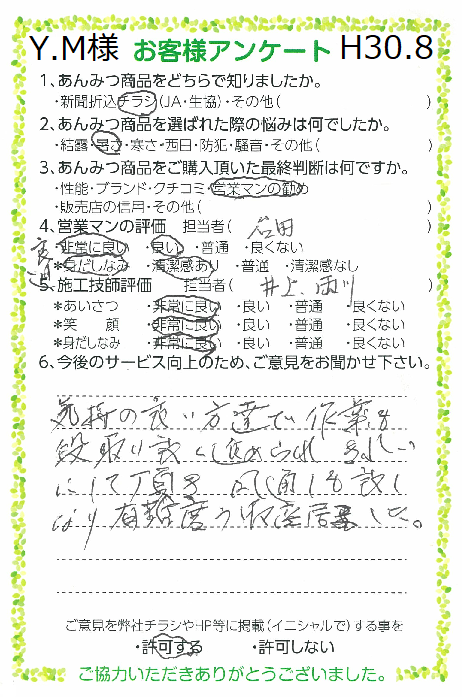 Y.M様 お客様アンケート H30.8
1、あんみつ商品をどちらで知りましたか。
・新聞折込チラシ(JA・生協)・その他( )
2、あんみつ商品を選ばれた際の悩みは何でしたか。
・結露・暑さ・寒さ・西日・防犯・騒音・その他( )
3、あんみつ商品をご購入頂いた最終判断は何ですか。
・性能・ブランド・クチコミ・営業マンの勧め
・販売店の信用・その他( )
4、営業マンの評価 担当者( 石田 )
・非常に良い ・良い ・普通 ・良くない
*身だしなみ ・清潔感あり ・普通 ・清潔感なし
5、施工技師評価 担当者( 井上、 )
*あいさつ ・非常に良い ・良い ・普通 ・良くない
*笑 顔 ・非常に良い ・良い ・普通 ・良くない
*身だしなみ ・非常に良い ・良い ・普通 ・良くない
6、今後のサービス向上のため、ご意見をお聞かせ下さい。
気持の良い方達で作業も
段取り良く進められ
にして頂き 風通しも良く
なり
ご意見を弊社チラシやHP等に掲載(イニシャルで)する事を
・許可する ・許可しない
ご協力いただきありがとうございました。